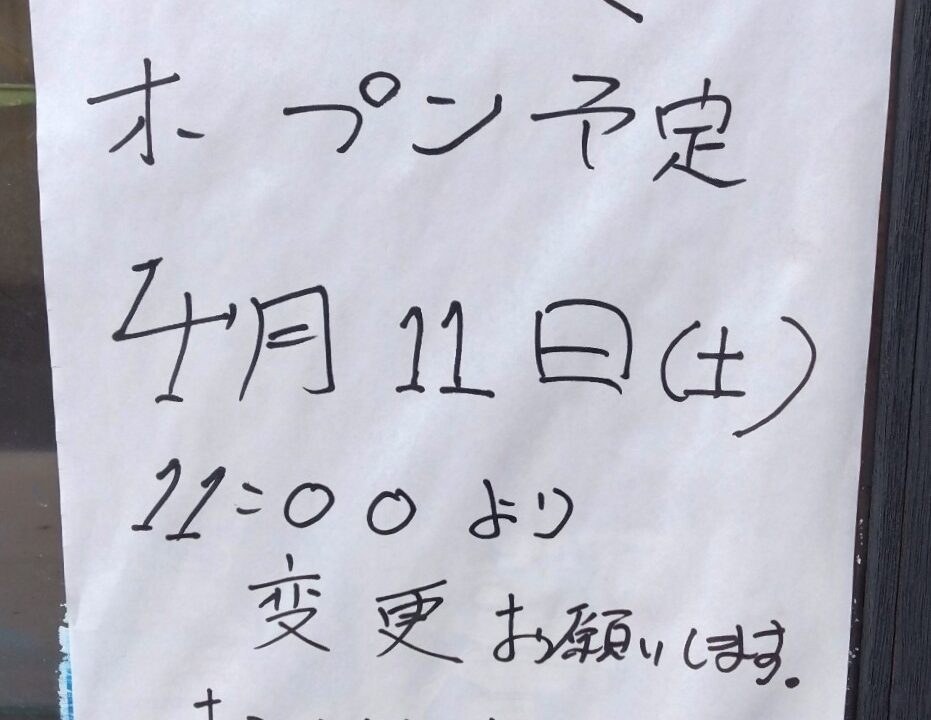 オープン予定
4月11日(土)
11:00より
変更お願いします.